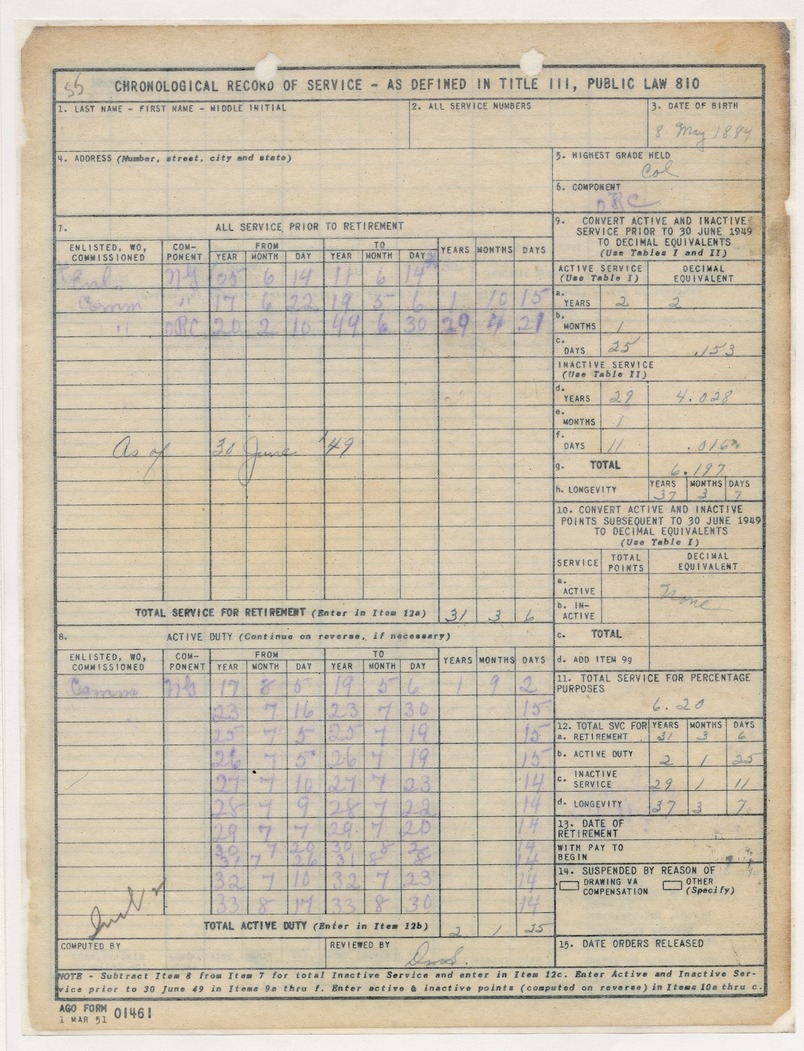 55
CHRONOLOGICAL RECORD OF SERVICE - AS DEFINED IN TITLE III, PUBLIC LAW 810
1. LAST NAME - FIRST NAME - MIDDLE INITIAL
2. ALL SERVICE NUMBERS
3. DATE OF BIRTH
8 May 1884
4. ADDRESS (Number, street, city and state)
5. HIGHEST GRADE HELD
Col
6. COMPONENT
ORC
7. ALL SERVICE PRIOR TO RETIREMENT
ENLISTED, WO, COMMISSIONED COM-PONENT FROM TO YEARS MONTHS DAYS
YEAR MONTH DAY YEAR MONTH DAY
Enl. NG 05 6 14 11 6 14
Comm " 17 6 22 19 5 6 1 10 15
" ORC 20 2 10 49 6 30 29 4 21
As of 30 June '49
TOTAL SERVICE FOR RETIREMENT (Enter in Item 12a) 31 3 6
8. ACTIVE DUTY (Continue on reverse, if necessary)
ENLISTED, WO, COMMISSIONED COM-PONENT FROM TO YEARS MONTHS DAYS
YEAR MONTH DAY YEAR MONTH DAY
Comm NG 17 8 5 19 5 6 1 9 2
23 7 16 23 7 30 15
25 7 5 25 7 19 15
26 7 5 26 7 19 15
27 7 10 27 7 23 14
28 7 9 28 7 22 14
29 7 7 29 7 20 14
30 7 20 30 8 2 14
31 7 26 31 8 8 14
32 7 10 32 7 23 14
33 8 17 33 8 30 14
TOTAL ACTIVE DUTY (Enter in Item 12b) 2 1 25
COMPUTED BY
REVIEWED BY
9. CONVERT ACTIVE AND INACTIVE
SERVICE PRIOR TO 30 JUNE 1949
TO DECIMAL EQUIVALENTS
(Use Tables I and II)
ACTIVE SERVICE (Use Table I) DECIMAL EQUIVALENT
a. YEARS 2 2
b. MONTHS 1
c. DAYS 25 .153
INACTIVE SERVICE
(Use Table II)
d. YEARS 29 4.028
e. MONTHS 1
f. DAYS 11 .016
g. TOTAL 6.197
h. LONGEVITY YEARS 37 MONTHS 3 DAYS 7
10. CONVERT ACTIVE AND INACTIVE
POINTS SUBSEQUENT TO 30 JUNE 1949
TO DECIMAL EQUIVALENTS
(Use Table I)
SERVICE TOTAL POINTS DECIMAL EQUIVALENT
a. ACTIVE
None
b. IN-ACTIVE
c. TOTAL
d. ADD ITEM 9g
11. TOTAL SERVICE FOR PERCENTAGE
PURPOSES
6.20
12. TOTAL SVC FOR YEARS MONTHS DAYS
a. RETIREMENT 31 3 6
b. ACTIVE DUTY 2 1 25
c. INACTIVE SERVICE 29 1 11
d. LONGEVITY 37 3 7
13. DATE OF
RETIREMENT
WITH PAY TO
BEGIN
14. SUSPENDED BY REASON OF
DRAWING VA COMPENSATION OTHER (Specify)
15. DATE ORDERS RELEASED
NOTE - Subtract Item 8 from Item 7 for total Inactive Service and enter in Item 12c. Enter Active and Inactive Ser-
vice prior to 30 June 49 in Items 9a thru f. Enter active & inactive points (computed on reverse) in Items 10a thru c.
AGO FORM
1 MAR 51 01461